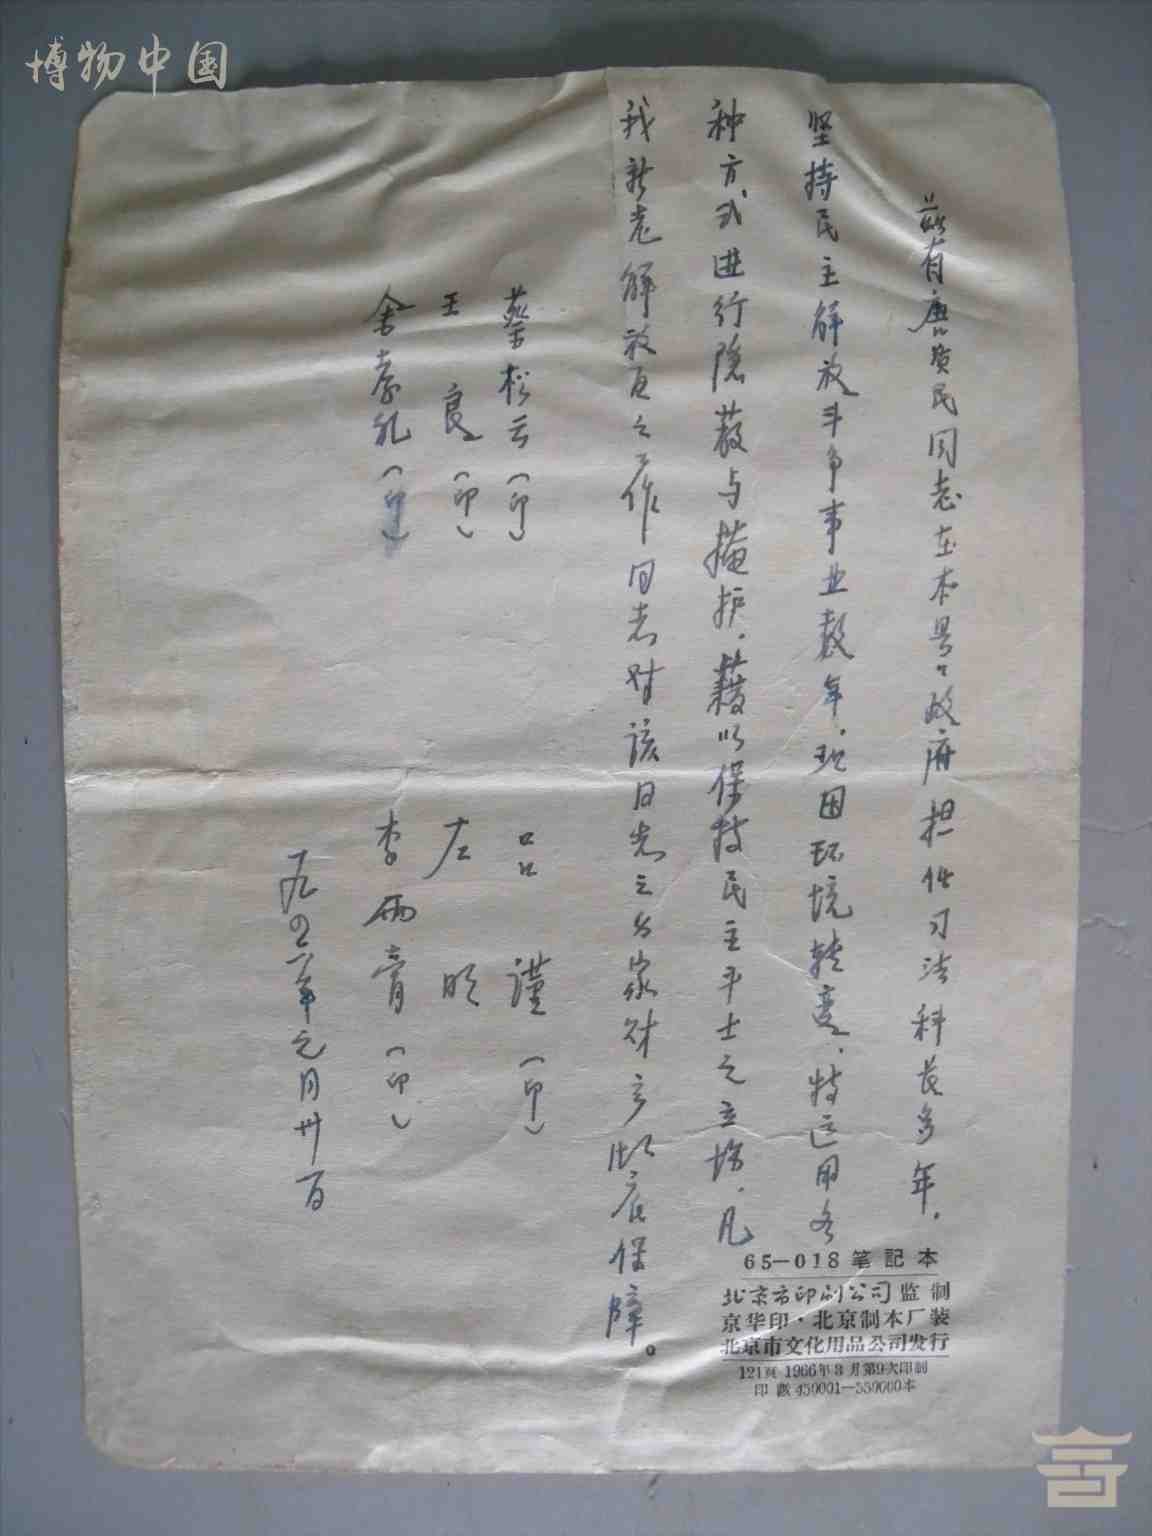 博物中国
兹有唐贡民同志在本县政府担任司法科长多年，
坚持民主解放斗争事业数年，现因环境转变，特运用各
种方式进行隐蔽与掩护，藉以保持民主斗士之立场，凡
我新老解放区之工作同志对该同志之家财应彻底保障。
蔡松云（印） 吕谨（印）
王良（印） 左明
李雨膏（印）
一九四二年元月卅一日
65—018 笔記本
北京市印刷公司監制
京华印·北京制本厂装
北京市文化用品公司发行
121頁 1966年3月第9次印制
印數 450001—550000本